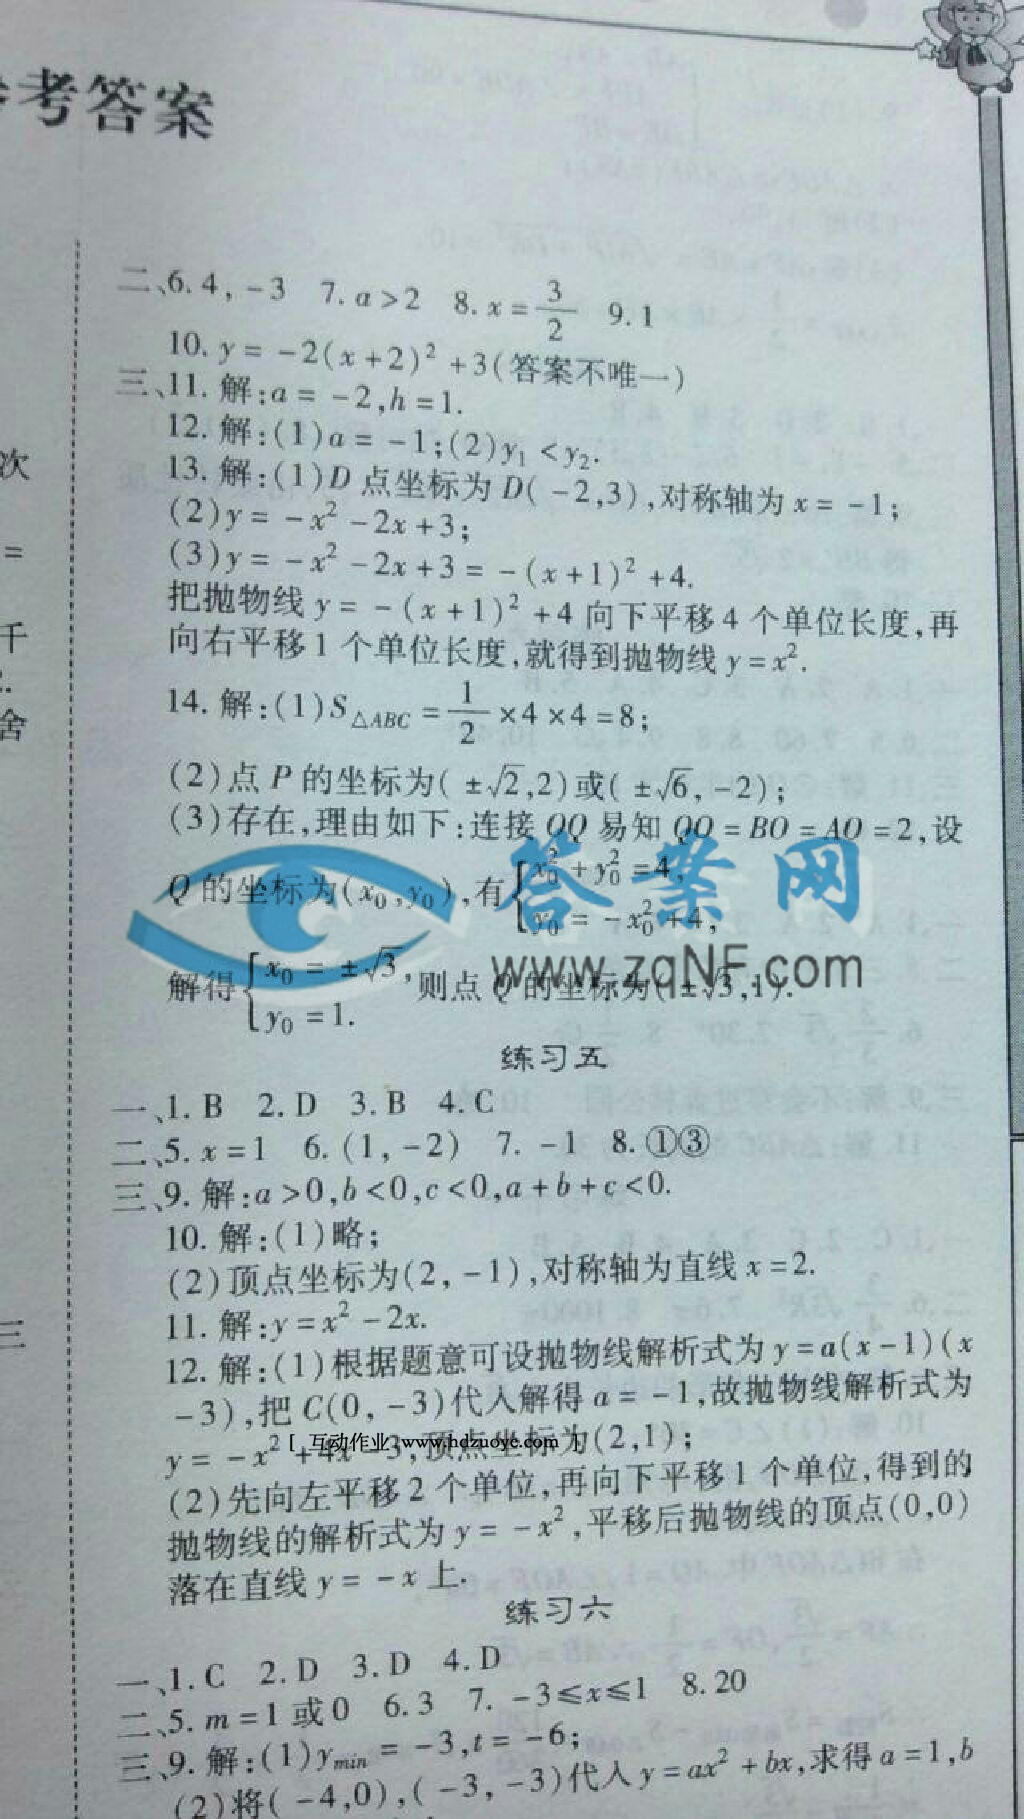 参考答案
二、6.4，-3 7.a>2 8.x=3/2 9.1
10.y=-2(x+2)²+3(答案不唯一)
三、11.解:a=-2,h=1.
12.解:(1)a=-1;(2)y₁<y₂.
13.解:(1)D点坐标为D(-2,3),对称轴为x=-1;
(2)y=-x²-2x+3;
(3)y=-x²-2x+3=-(x+1)²+4.
把抛物线y=-(x+1)²+4向下平移4个单位长度,再
向右平移1个单位长度,就得到抛物线y=x².
14.解:(1)S△ABC=1/2×4×4=8;
(2)点P的坐标为(±√2,2)或(±√6,-2);
(3)存在,理由如下:连接OQ易知QO=BO=AO=2,设
Q的坐标为(x₀,y₀),有{x₀²+y₀²=4,
y₀=-x₀²+4,
答案网
www.zqNF.com
解得{x₀=±√3,
y₀=1.
则点Q的坐标为(±√3,1).
练习五
一、1.B 2.D 3.B 4.C
二、5.x=1 6.(1,-2) 7.-1 8.①③
三、9.解:a>0,b<0,c<0,a+b+c<0.
10.解:(1)略;
(2)顶点坐标为(2,-1),对称轴为直线x=2.
11.解:y=x²-2x.
12.解:(1)根据题意可设抛物线解析式为y=a(x-1)(x
-3),把C(0,-3)代入解得a=-1,故抛物线解析式为
y=-x²+4x-3,顶点坐标为(2,1);
[ 互动作业 www.hdzuoye.com ]
(2)先向左平移2个单位,再向下平移1个单位,得到的
抛物线的解析式为y=-x²,平移后抛物线的顶点(0,0)
落在直线y=-x上.
练习六
一、1.C 2.D 3.D 4.D
二、5.m=1或0 6.3 7.-3≤x≤1 8.20
三、9.解:(1)y_min=-3,t=-6;
(2)将(-4,0),(-3,-3)代入y=ax²+bx,求得a=1,b
次
=
千
舍
三